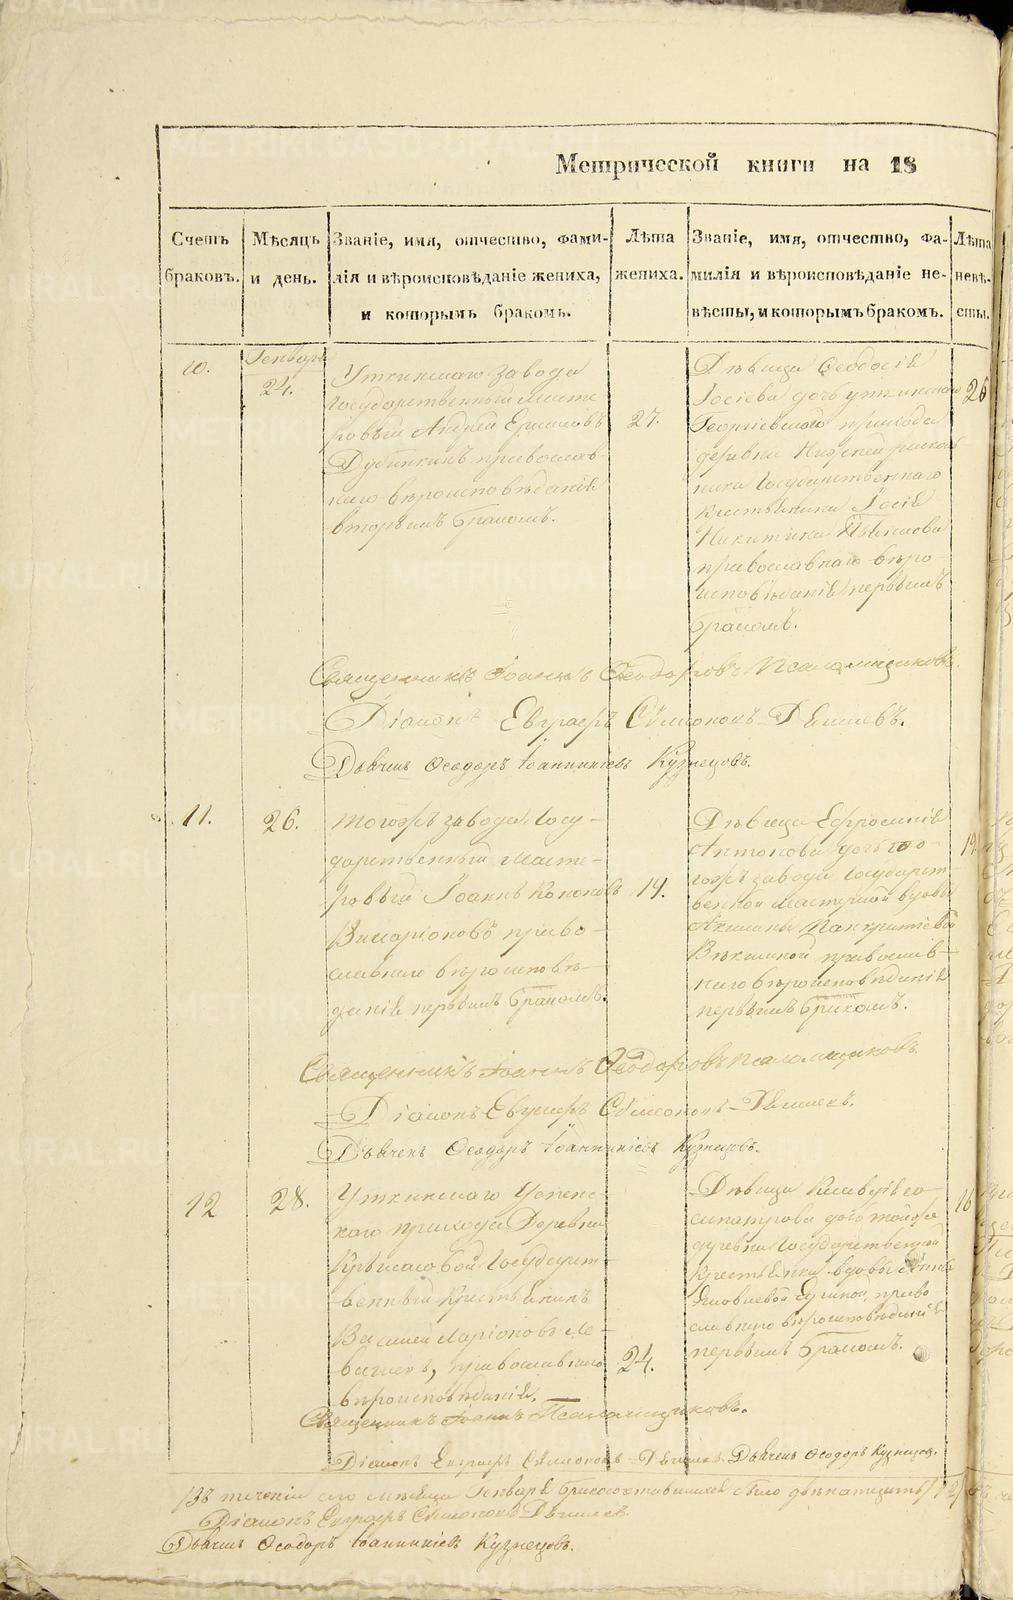 Метрической книги на 18
Счетъ браковъ.
Мѣсяцъ и день.
Званіе, имя, отчество, фами-
лія и вѣроисповѣданіе жениха,
и которымъ бракомъ.
Лѣта жениха.
Званіе, имя, отчество, фа-
милія и вѣроисповѣданіе не-
вѣсты, и которымъ бракомъ.
Лѣта невѣ-
сты.
10.
Генваря
24.
Уткинскаго завода
Государственный масте
ровый Андрей
Дубинкинъ православ
наго вѣроисповѣданія
вторымъ бракомъ.
27.
Дѣвица Феодосія
Іосіева дочь уткинскаго
Георгіевскаго прихода
деревни Нижней
Государственнаго
крестьянина Іосія
Никитина
православнаго вѣро
исповѣданія первымъ
бракомъ.
26
Священникъ Іоаннъ Ѳеодоровъ Псаломщиковъ.
Діаконъ Евграфъ Симоновъ Дягилевъ.
Дьячекъ Ѳеодоръ Іоанникіевъ Кузнецовъ.
11.
26.
тогожъ завода Госу-
дарственный масте-
ровый Іоаннъ Кононовъ
право-
славнаго вѣроисповѣ-
данія первымъ бракомъ.
19.
Дѣвица Ефросинія
Антонова дочь то-
гожъ завода Государст-
венной мастерской вдовы
Акилины Панкратіевой
православ-
наго вѣроисповѣданія
первымъ бракомъ.
19.
Священникъ Іоаннъ Ѳеодоровъ Псаломщиковъ.
Діаконъ Евграфъ Симоновъ Дягилевъ.
Дьячекъ Ѳеодоръ Іоанникіевъ Кузнецовъ.
12
28.
Уткинскаго Успенс-
каго прихода Деревни
Крыласовой Государст-
венный крестьянинъ
Василей Ларіоновъ
православнаго
вѣроисповѣданія.
24.
Дѣвица Клавдія
дочь тойже
деревни Государственной
крестьянки вдовы
право
славнаго вѣроисповѣданія
первымъ бракомъ.
16
Священникъ Іоаннъ Псаломщиковъ.
Діаконъ Евграфъ Симоновъ Дягилевъ. Дьячекъ Ѳеодоръ Кузнецовъ.
Въ теченіи сего мѣсяца Генваря бракосочетавшихся было двенатцать /12/
Діаконъ Евграфъ Симоновъ Дягилевъ.
Дьячекъ Ѳеодоръ Іоанникіевъ Кузнецовъ.